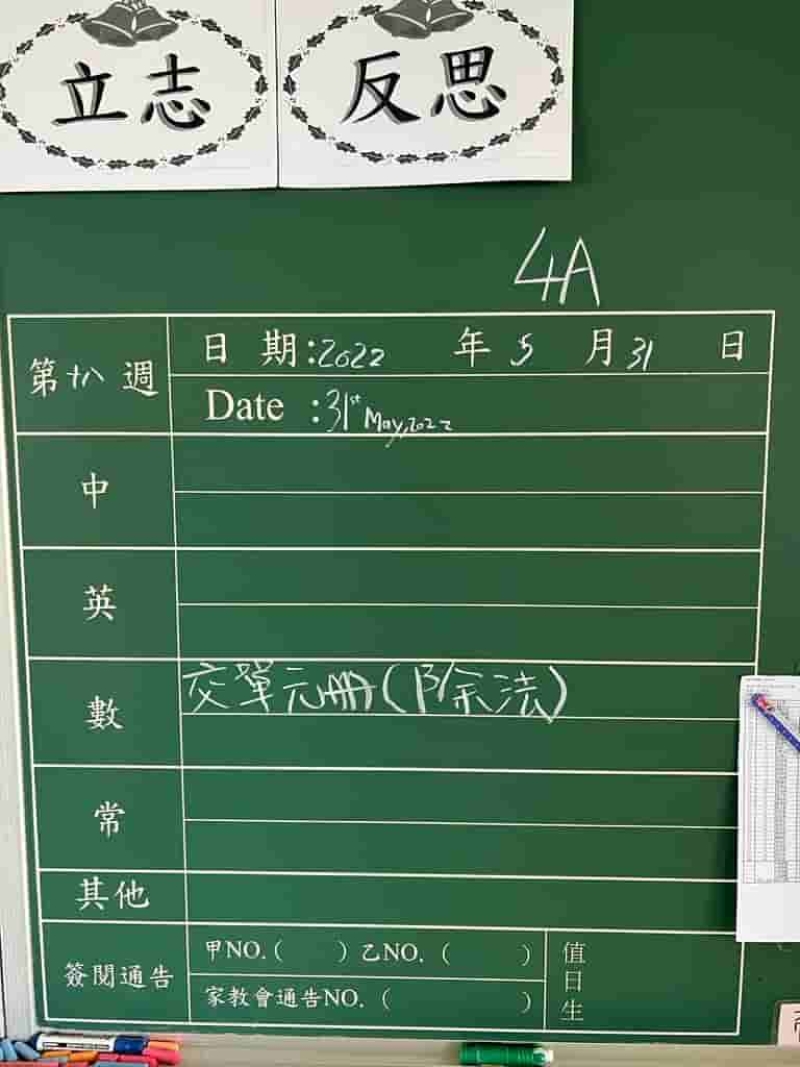 立志 反思
4A
第十八週
日期:2022 年 5 月 31 日
Date :31st May, 2022
中
英
數
交單元冊(除法)
常
其他
簽閱通告
甲NO.( ) 乙NO. ( )
家教會通告NO. ( )
值日生